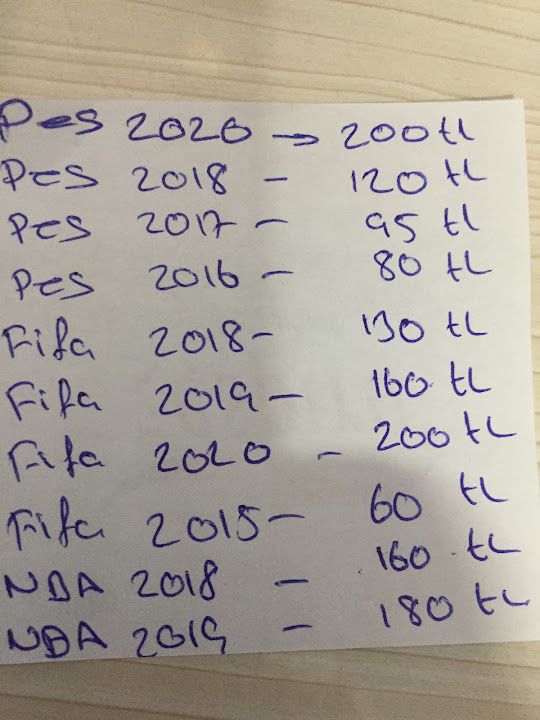 Pes 2020 → 200 tl
Pes 2018 - 120 tL
Pes 2017 - 95 tL
Pes 2016 - 80 tL
Fifa 2018 - 130 tL
Fifa 2019 - 160 tL
Fifa 2020 - 200 tL
Fifa 2015 - 60 tL
NBA 2018 - 160 tL
NBA 2019 - 180 tL